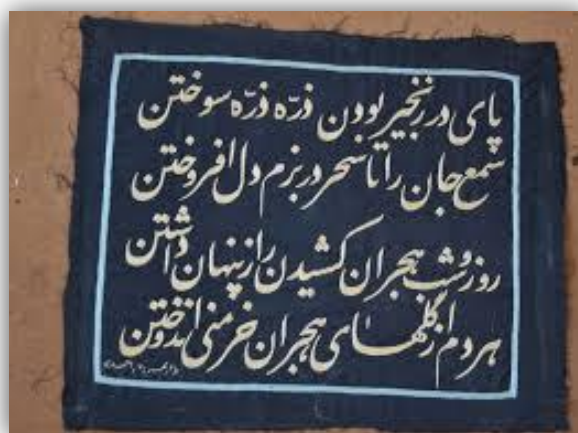 پای در زنجیر بودن ذرّه ذرّه سوختن
شمع جان را تا سحر در بزم دل افروختن
روز و شب هجران کشیدن راز پنهان داشتن
هر دم از گلهای هجران خرمنی اندوختن